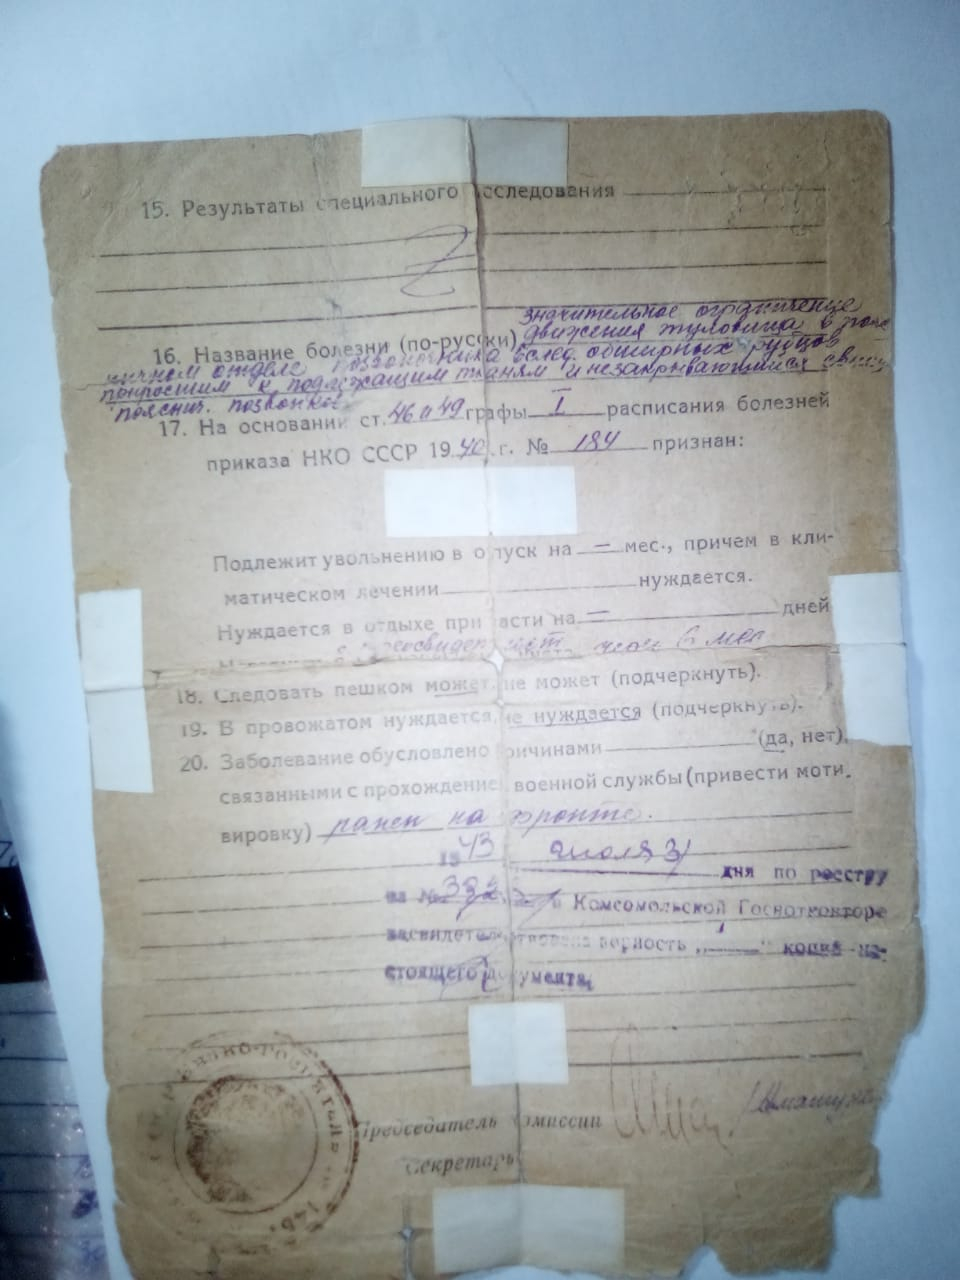 15. Результаты специального исследования
значительное ограничение
16. Название болезни (по-русски) движения туловища в пояс
ничном отделе позвоночника вслед. обширных рубцов
подлежащим тканям и незакрывающийся свищ
пояснич. позвонков
17. На основании ст. 46 и 49 графы I расписания болезней
приказа НКО СССР 1940 г. № 184 признан:
Подлежит увольнению в отпуск на — мес., причем в кли-
матическом лечении нуждается.
Нуждается в отдыхе при части на — дней
6 мес
18. Следовать пешком может, не может (подчеркнуть).
19. В провожатом нуждается, не нуждается (подчеркнуть).
20. Заболевание обусловлено причинами (да, нет),
связанными с прохождением военной службы (привести моти-
вировку) ранен на фронте.
1943 июля 31
дня по реестру
за № 332 в Комсомольской Госнотконторе
засвидетельствована верность „1“ копии на-
стоящего документа.
Председатель комиссии
Секретарь